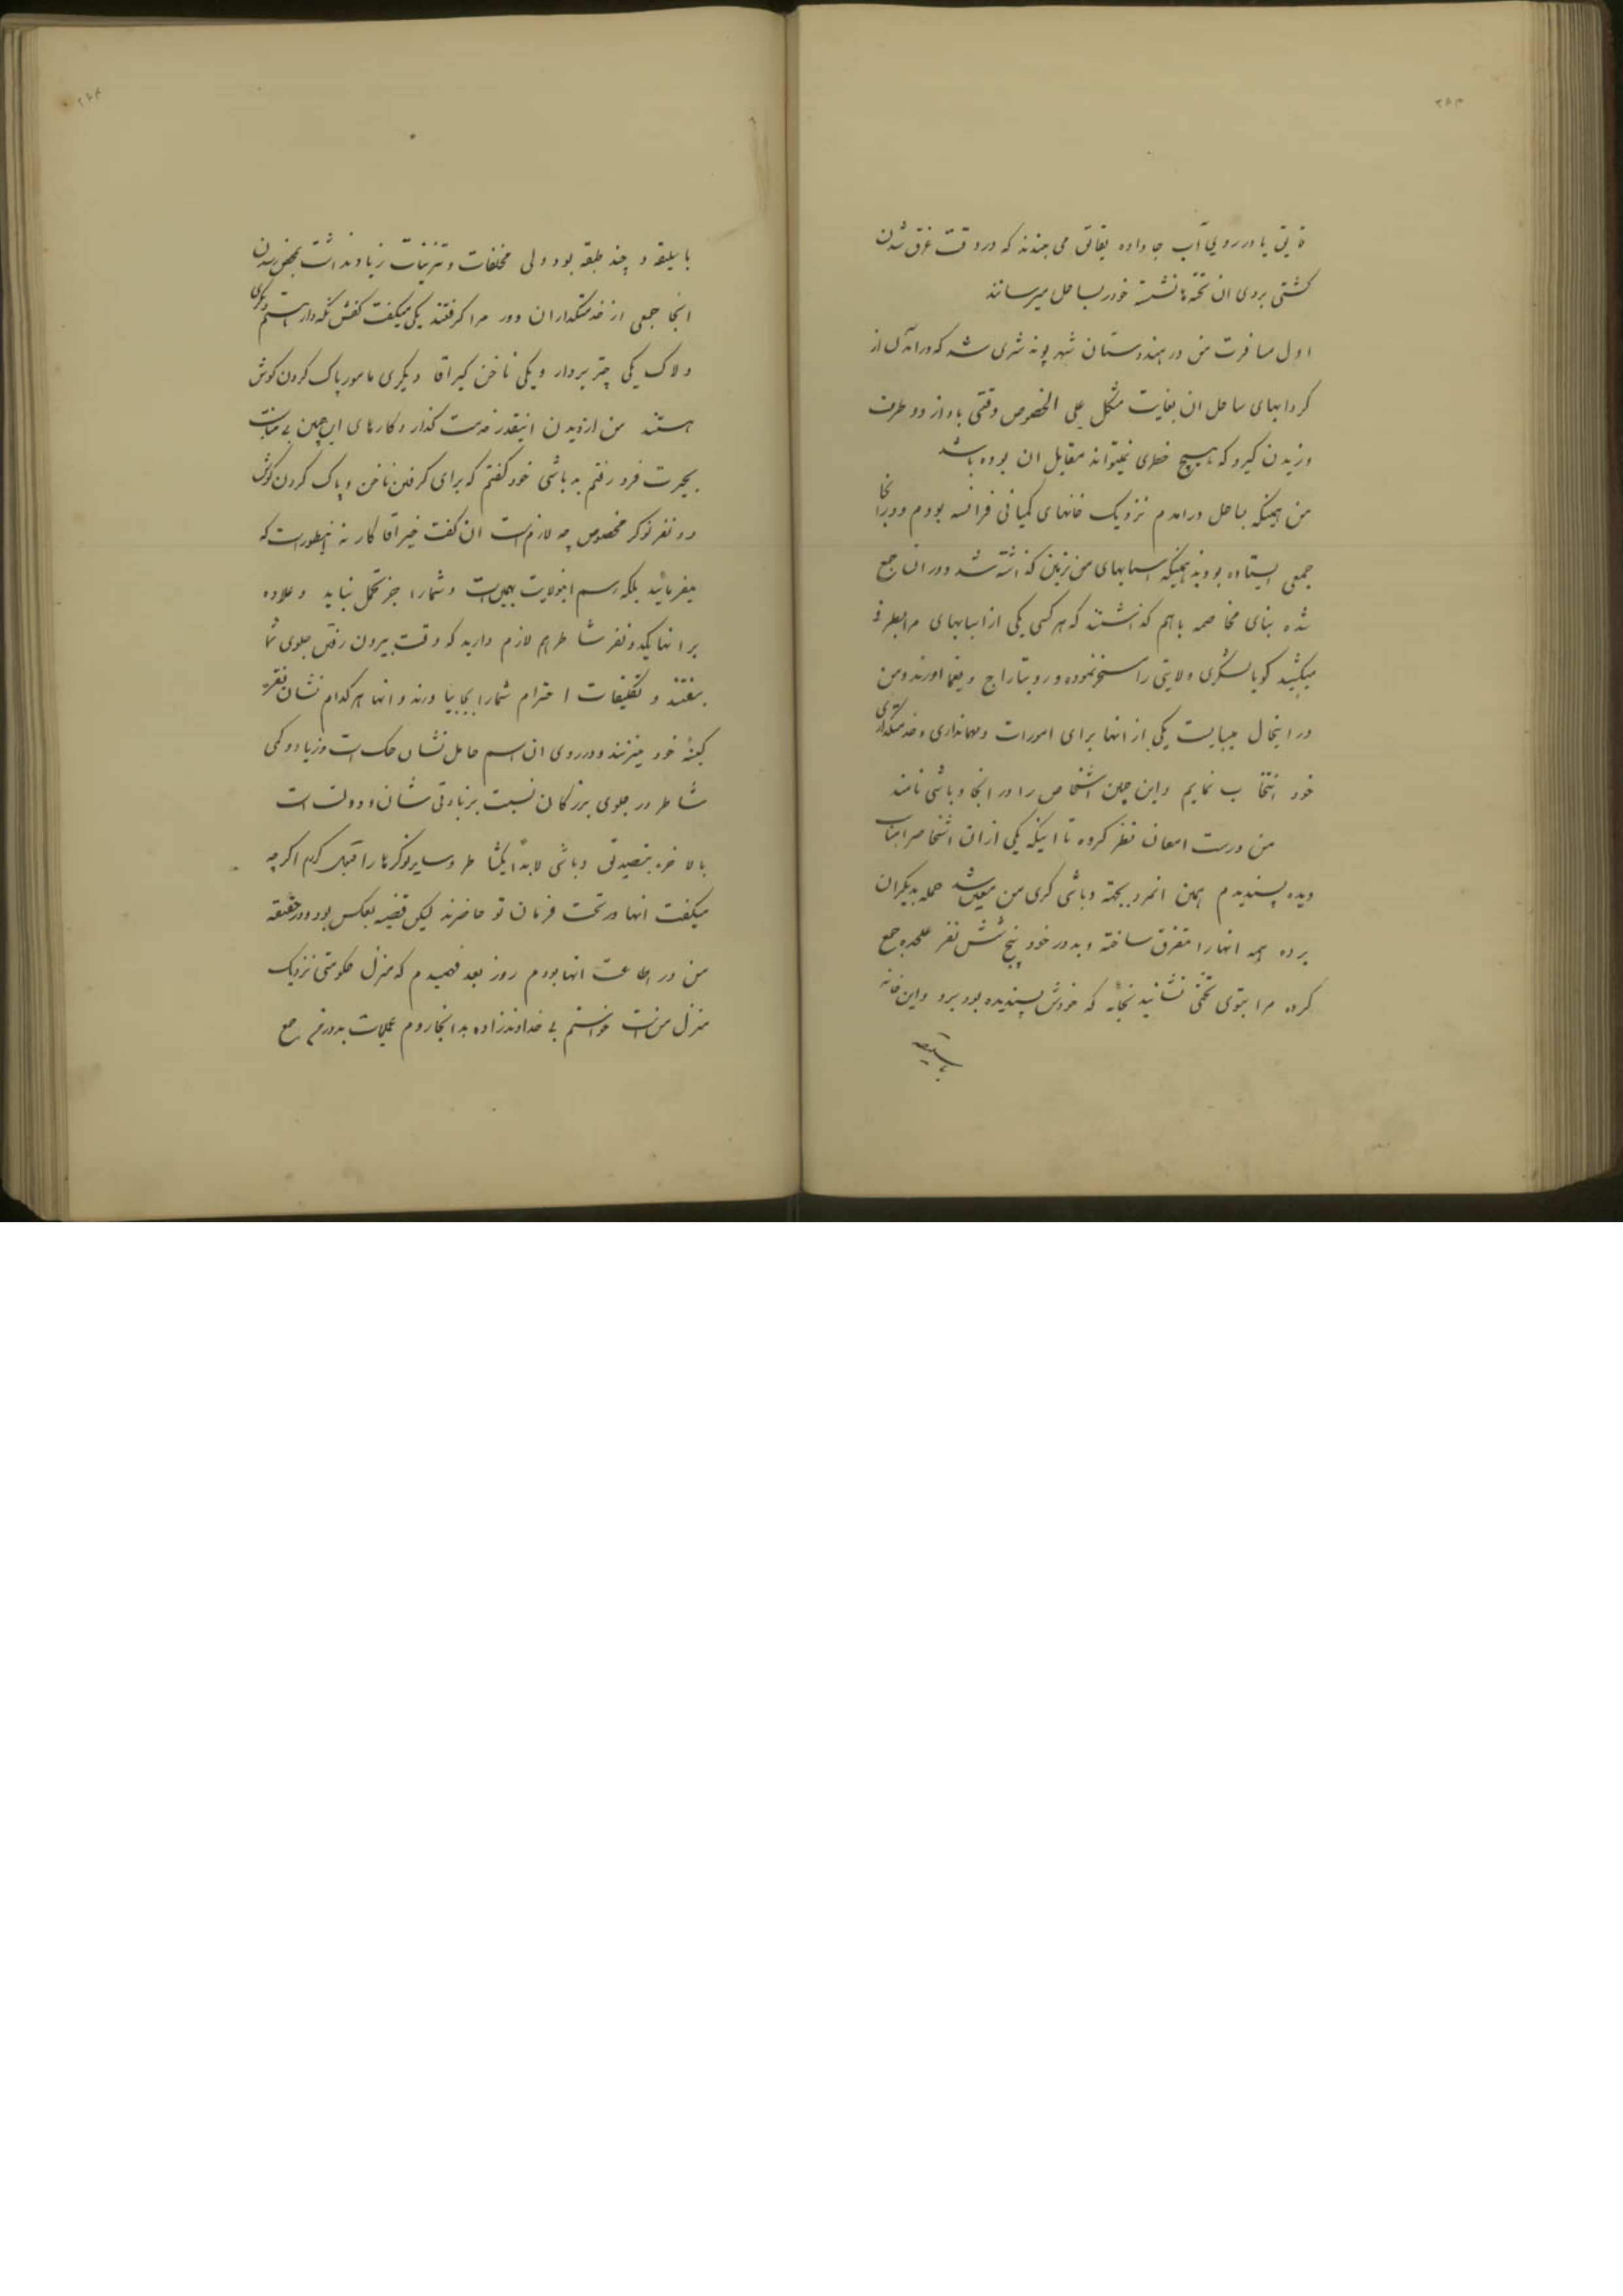 ۲۶۳
قایق یا در روی آب جا داده بقایق می بندند که در وقت غرق شدن
کشتی بروی ان تخته ها نشسته خود را بساحل میرسانند
اول مسافرت من در هندوستان شهر پونه شری شد که در آمدن از
گردابهای ساحل ان بغایت مشکل علی الخصوص وقتی باد از دو طرف
وزیدن گیرد که هیچ خطری نمیتواند مقابل ان بوده باشد
من همینکه بساحل درامدم نزدیک خانهای کمپانی فرانسه بودم و در انجا
جمعی ایستاده بودند همینکه اسبابهای من بزمین گذاشته شد دور ان جمع
شده بنای مخاصمه باهم گذاشتند که هر کسی یکی از اسبابهای مرا بطرفی
میکشید گویا لشگری ولایتی را مسخر نموده و رو بتاراج و یغما اورند و من
در اینحال میبایست یکی از انها برای امورات و مهمانداری و خدمتگذاری
خود انتخاب نمایم و این چنین اشخاص را در انجا دباشی نامند
من درست امعان نظر کرده تا اینکه یکی از ان اشخاص را
دیده پسندیدم همین انمرد بجهته دباشی گری من معین شد حمله بدیگران
برده همه انها را متفرق ساخته و بدور خود پنج شش نفر علیحده جمع
کرده مرا بتوی تختی نشانید بخانه که خودش پسندیده بود برد و این خانه
باسلیقه
۲۶۴
باسلیقه و چند طبقه بود ولی مخلفات و تزئینات زیاد نداشت بمحض رسیدن
انجا جمعی از خدمتگذاران دور مرا گرفتند یکی میگفت کفش نگه دار هستم دیگری
دلاک یکی چتر بردار و یکی ناخن گیر اقا دیگری مامور پاک کردن گوش
هستند من از دیدن اینقدر خدمت گذار و کارهای این چنین بی مناسبت
بحیرت فرو رفتم به دباشی خود گفتم که برای گرفتن ناخن و پاک کردن گوش
دو نفر نوکر مخصوص چه لازمست ان گفت خیر اقا کار نه اینطور است که
میفرمائید بلکه رسم اینولایت همین است و شما را جز تحمل نباید و علاوه
بر انها یکدو نفر شاطر هم لازم دارید که وقت بیرون رفتن جلوی شما
بیفتند و تکلیفات احترام شما را بجا بیاورند و انها هر کدام نشان نقره
بسینهٔ خود میزنند و در روی ان اسم حامل نشان حک است و زیاد و کمی
شاطر در جلوی بزرگان نسبت بزیادتی شان و دولت است
بالاخره بتصدیق دباشی لابداً یکشاطر و سایر نوکرها را قبول کردم اگرچه
میگفت انها در تحت فرمان تو حاضرند لیکن قضیه بعکس بود و در حقیقه
من در اطاعت انها بودم روز بعد فهمیدم که منزل حکومتی نزدیک
منزل من است خواستم بی خداوندزاده بدانجا روم عملجات بدورم جمع